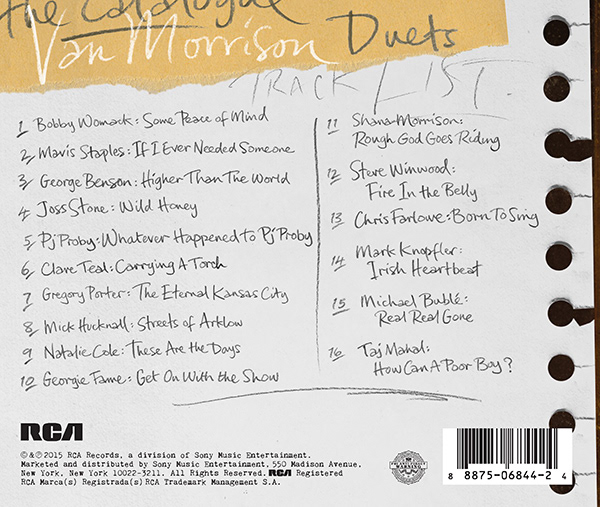 the Catalogue
Van Morrison Duets
TRACK LIST.
1 Bobby Womack: Some Peace of Mind
2 Mavis Staples: If I Ever Needed Someone
3 George Benson: Higher Than The World
4 Joss Stone: Wild Honey
5 PJ Proby: Whatever Happened to PJ Proby
6 Clare Teal: Carrying A Torch
7 Gregory Porter: The Eternal Kansas City
8 Mick Hucknall: Streets of Arklow
9 Natalie Cole: These Are the Days
10 Georgie Fame: Get On With the Show
11 Shana Morrison:
Rough God Goes Riding
12 Steve Winwood:
Fire In the Belly
13 Chris Farlowe: Born To Sing
14 Mark Knopfler:
Irish Heartbeat
15 Michael Bublé:
Real Real Gone
16 Taj Mahal:
How Can A Poor Boy?
RCA
©&℗2015 RCA Records, a division of Sony Music Entertainment.
Marketed and distributed by Sony Music Entertainment, 550 Madison Avenue,
New York, New York 10022-3211. All Rights Reserved. RCA Registered
RCA Marca(s) Registrada(s) RCA Trademark Management S.A.
WARNING
8 8875-06844-2 4